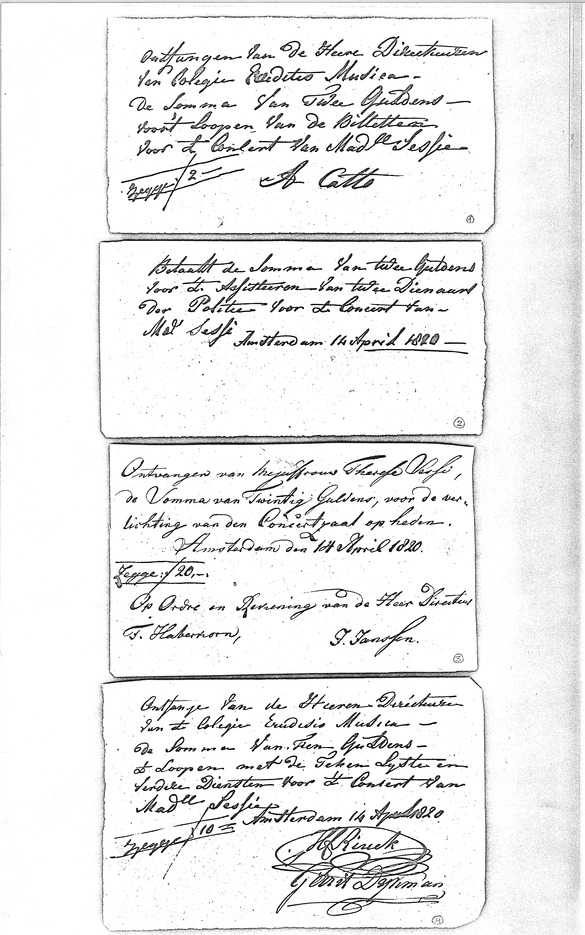 Ontfangen Van de Heere Directeuren
Van Colegie Eruditio Musica -
de Somma Van Twee Guldens -
voor't Loopen Van de Billetten
Voor 't Consert Van Mad^lle Sessje
Zegge ƒ 2 -
A Catto
1
Betaalt de Somma Van twee Guldens
voor 't Assisteeren Van twee Dienaars
der Politie voor 't Concert Van -
Mad Sessi
Amsterdam 14 April 1820 -
2
Ontvangen van Mejuffrouw Therese Sessi,
de Somma van Twintig Guldens, voor de ver-
lichting van den Concertzaal op heden.
Amsterdam den 14 April 1820.
Zegge ƒ 20,-.
Op Ordre en Rekening van de Heer Directeur
F. Haberkorn,
J. Janssen.
3
Ontfange Van de Heeren Directeure
Van 't Colegie Erudisio Musica -
de Somma Van Tien Guldens -
't Loopen met de Teken Lyste en
Verdere Diensten Voor 't Consert Van
Mad^lle Sessje
Amsterdam 14 April 1820
Zegge ƒ 10 =
Rinck
Gerrit Dykman
4